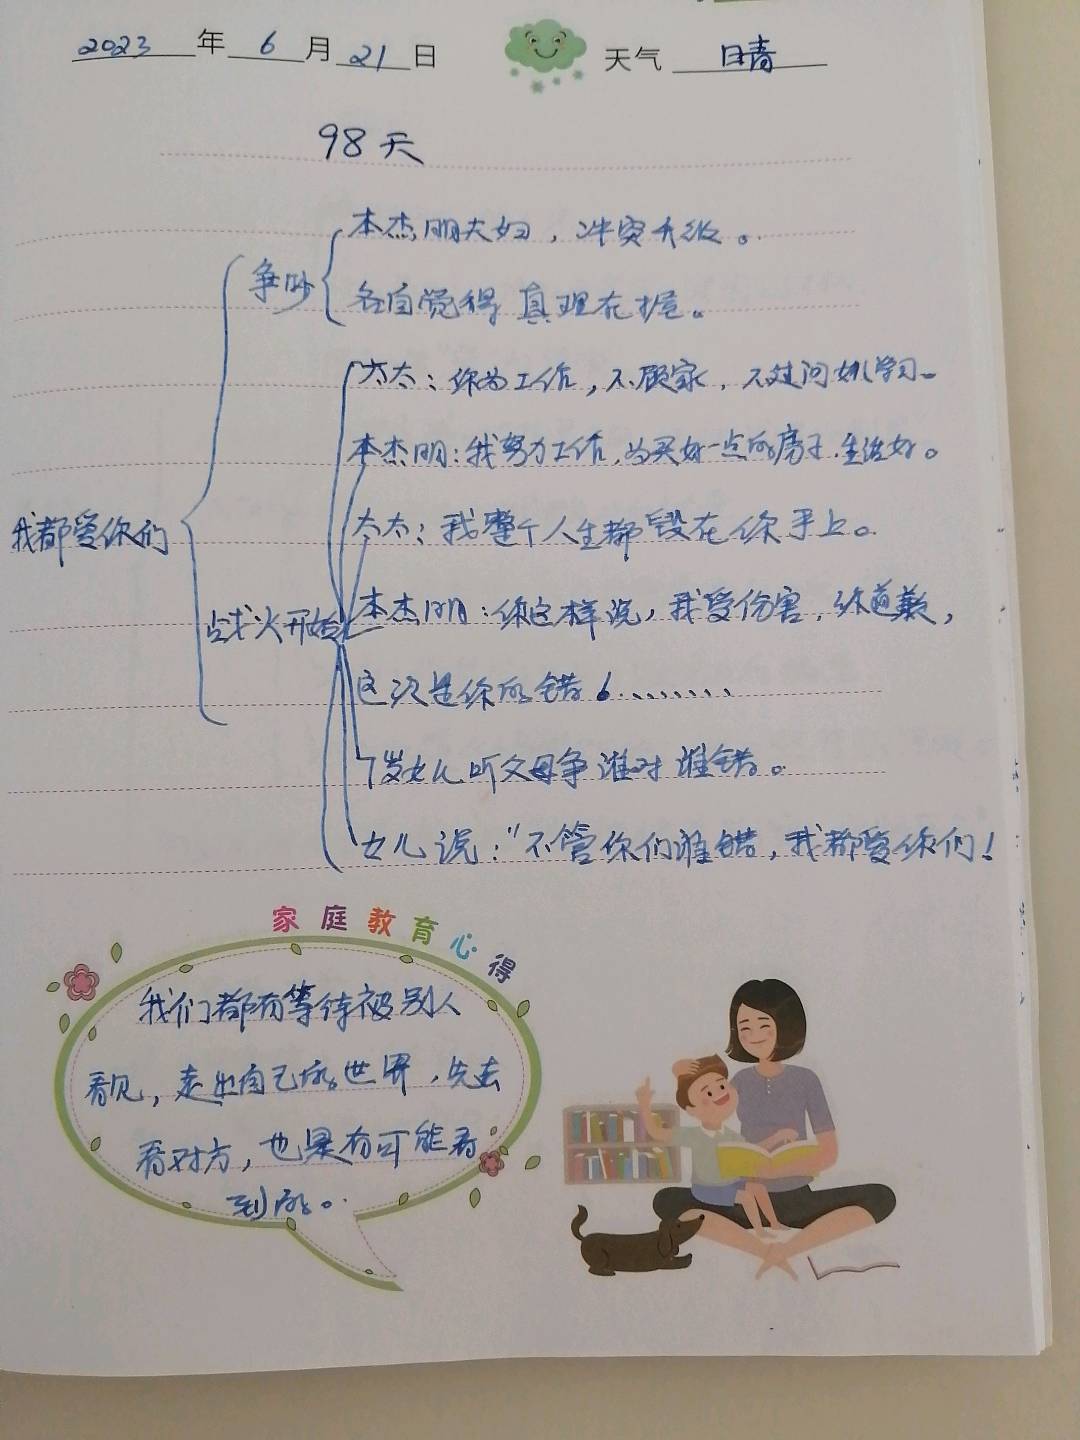 2023年6月21日 天气 晴
98天
本杰明夫妇，冲突升级。
争吵
各自觉得真理在握。
太太：你为工作，不顾家，不过问她学习。
本杰明：我努力工作，为买好一点的房子.生活好。
太太：我整个人生都毁在你手上。
我都爱你们
战火开始
本杰明：你这样说，我受伤害，你道歉，
这次是你的错
7岁女儿听父母争谁对谁错。
女儿说："不管你们谁错，我都爱你们！
家庭教育心得
我们都有等待被别人
看见，走出自己的世界，先去
看对方，也是有可能看
到的。